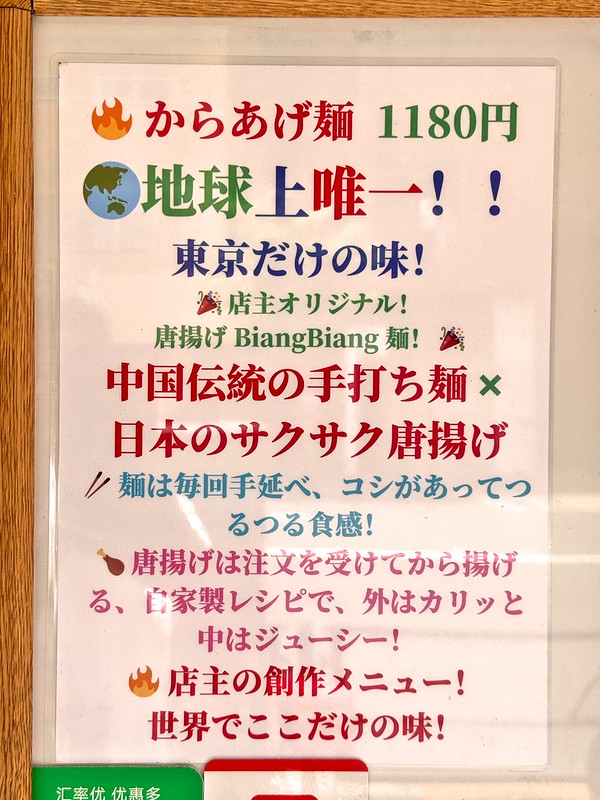 🔥からあげ麺 1180円
🌏地球上唯一！！
東京だけの味！
🎉店主オリジナル！
唐揚げ BiangBiang 麺！🎉
中国伝統の手打ち麺 ×
日本のサクサク唐揚げ
🥢麺は毎回手延べ、コシがあってつ
るつる食感！
🍗唐揚げは注文を受けてから揚げ
る、自家製レシピで、外はカリッと
中はジューシー！
🔥店主の創作メニュー！
世界でここだけの味！
汇率优 优惠多